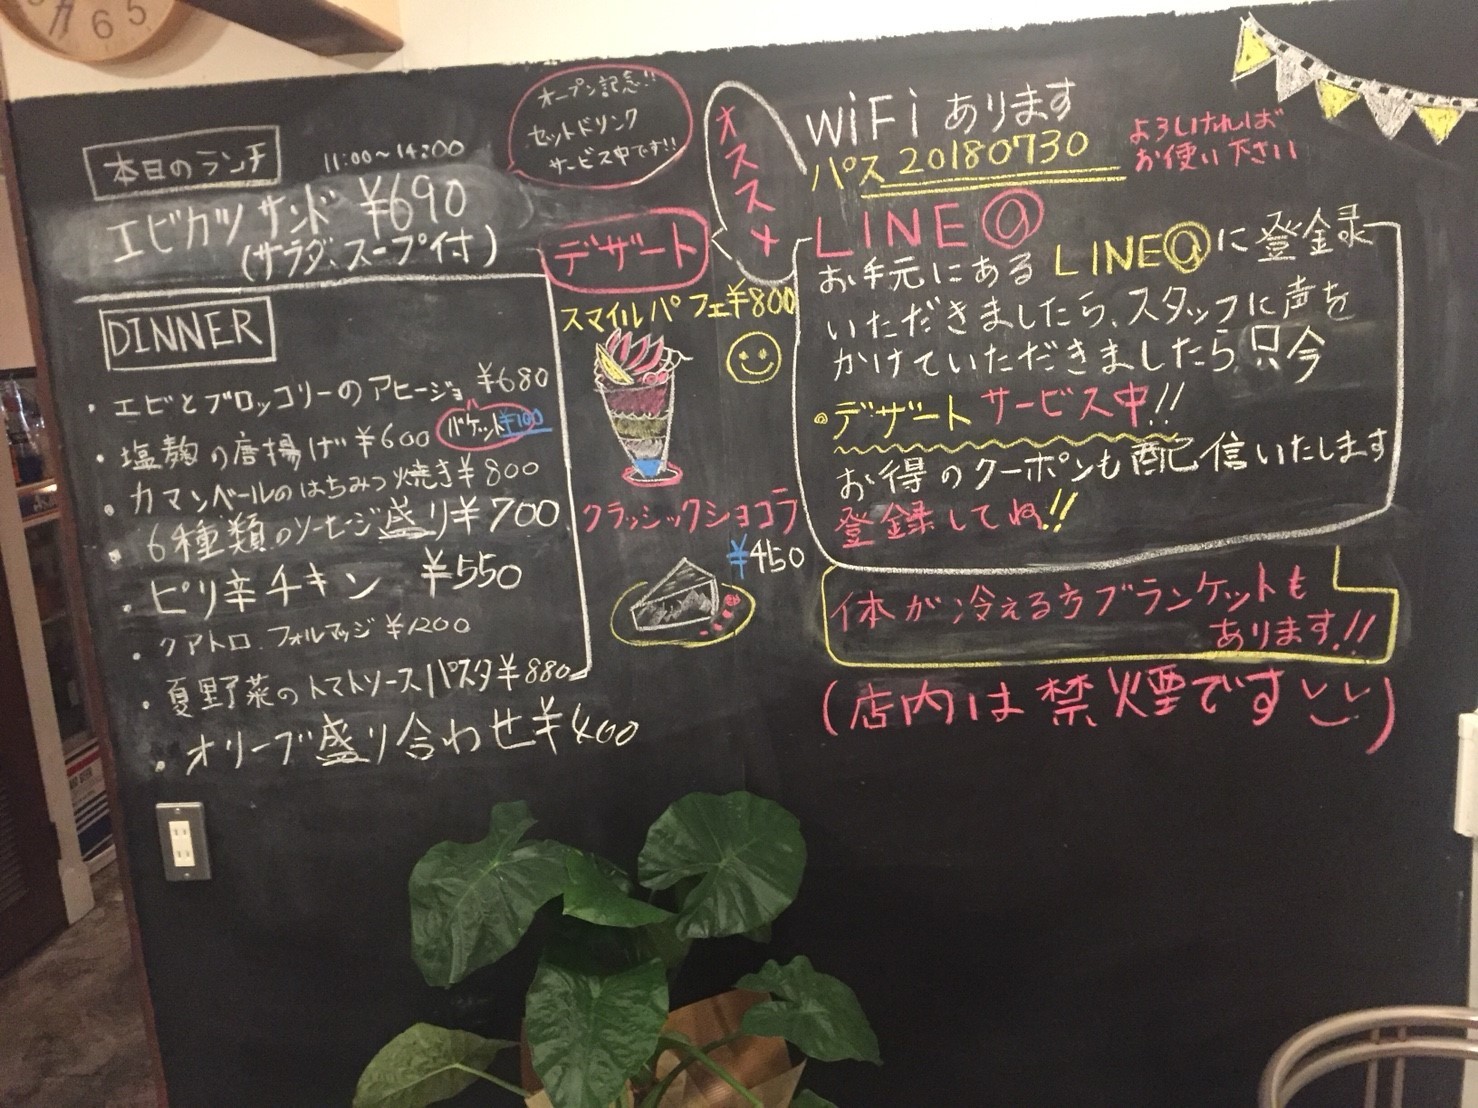 6
5
本日のランチ
11:00~14:00
エビカツサンド ¥690
(サラダ、スープ付)
オープン記念!!
セットドリンク
サービス中です!!
DINNER
・エビとブロッコリーのアヒージョ ¥680
バケット¥100
・塩麹の唐揚げ ¥600
・カマンベールのはちみつ焼き ¥800
・6種類のソーセージ盛り ¥700
・ピリ辛チキン ¥550
・クアトロ フォルマッジ ¥1200
・夏野菜のトマトソースパスタ ¥880
・オリーブ盛り合わせ ¥400
オススメ
デザート
スマイルパフェ ¥800
クラッシックショコラ
¥450
WiFi あります
パス 20180730
よろしければ
お使い下さい
LINE@
お手元にある LINE@に登録
いただきましたら、スタッフに声を
かけていただきましたら只今
・デザート サービス中!!
お得のクーポンも配信いたします
登録してね!!
体が冷える方ブランケットも
あります!!
(店内は禁煙です)